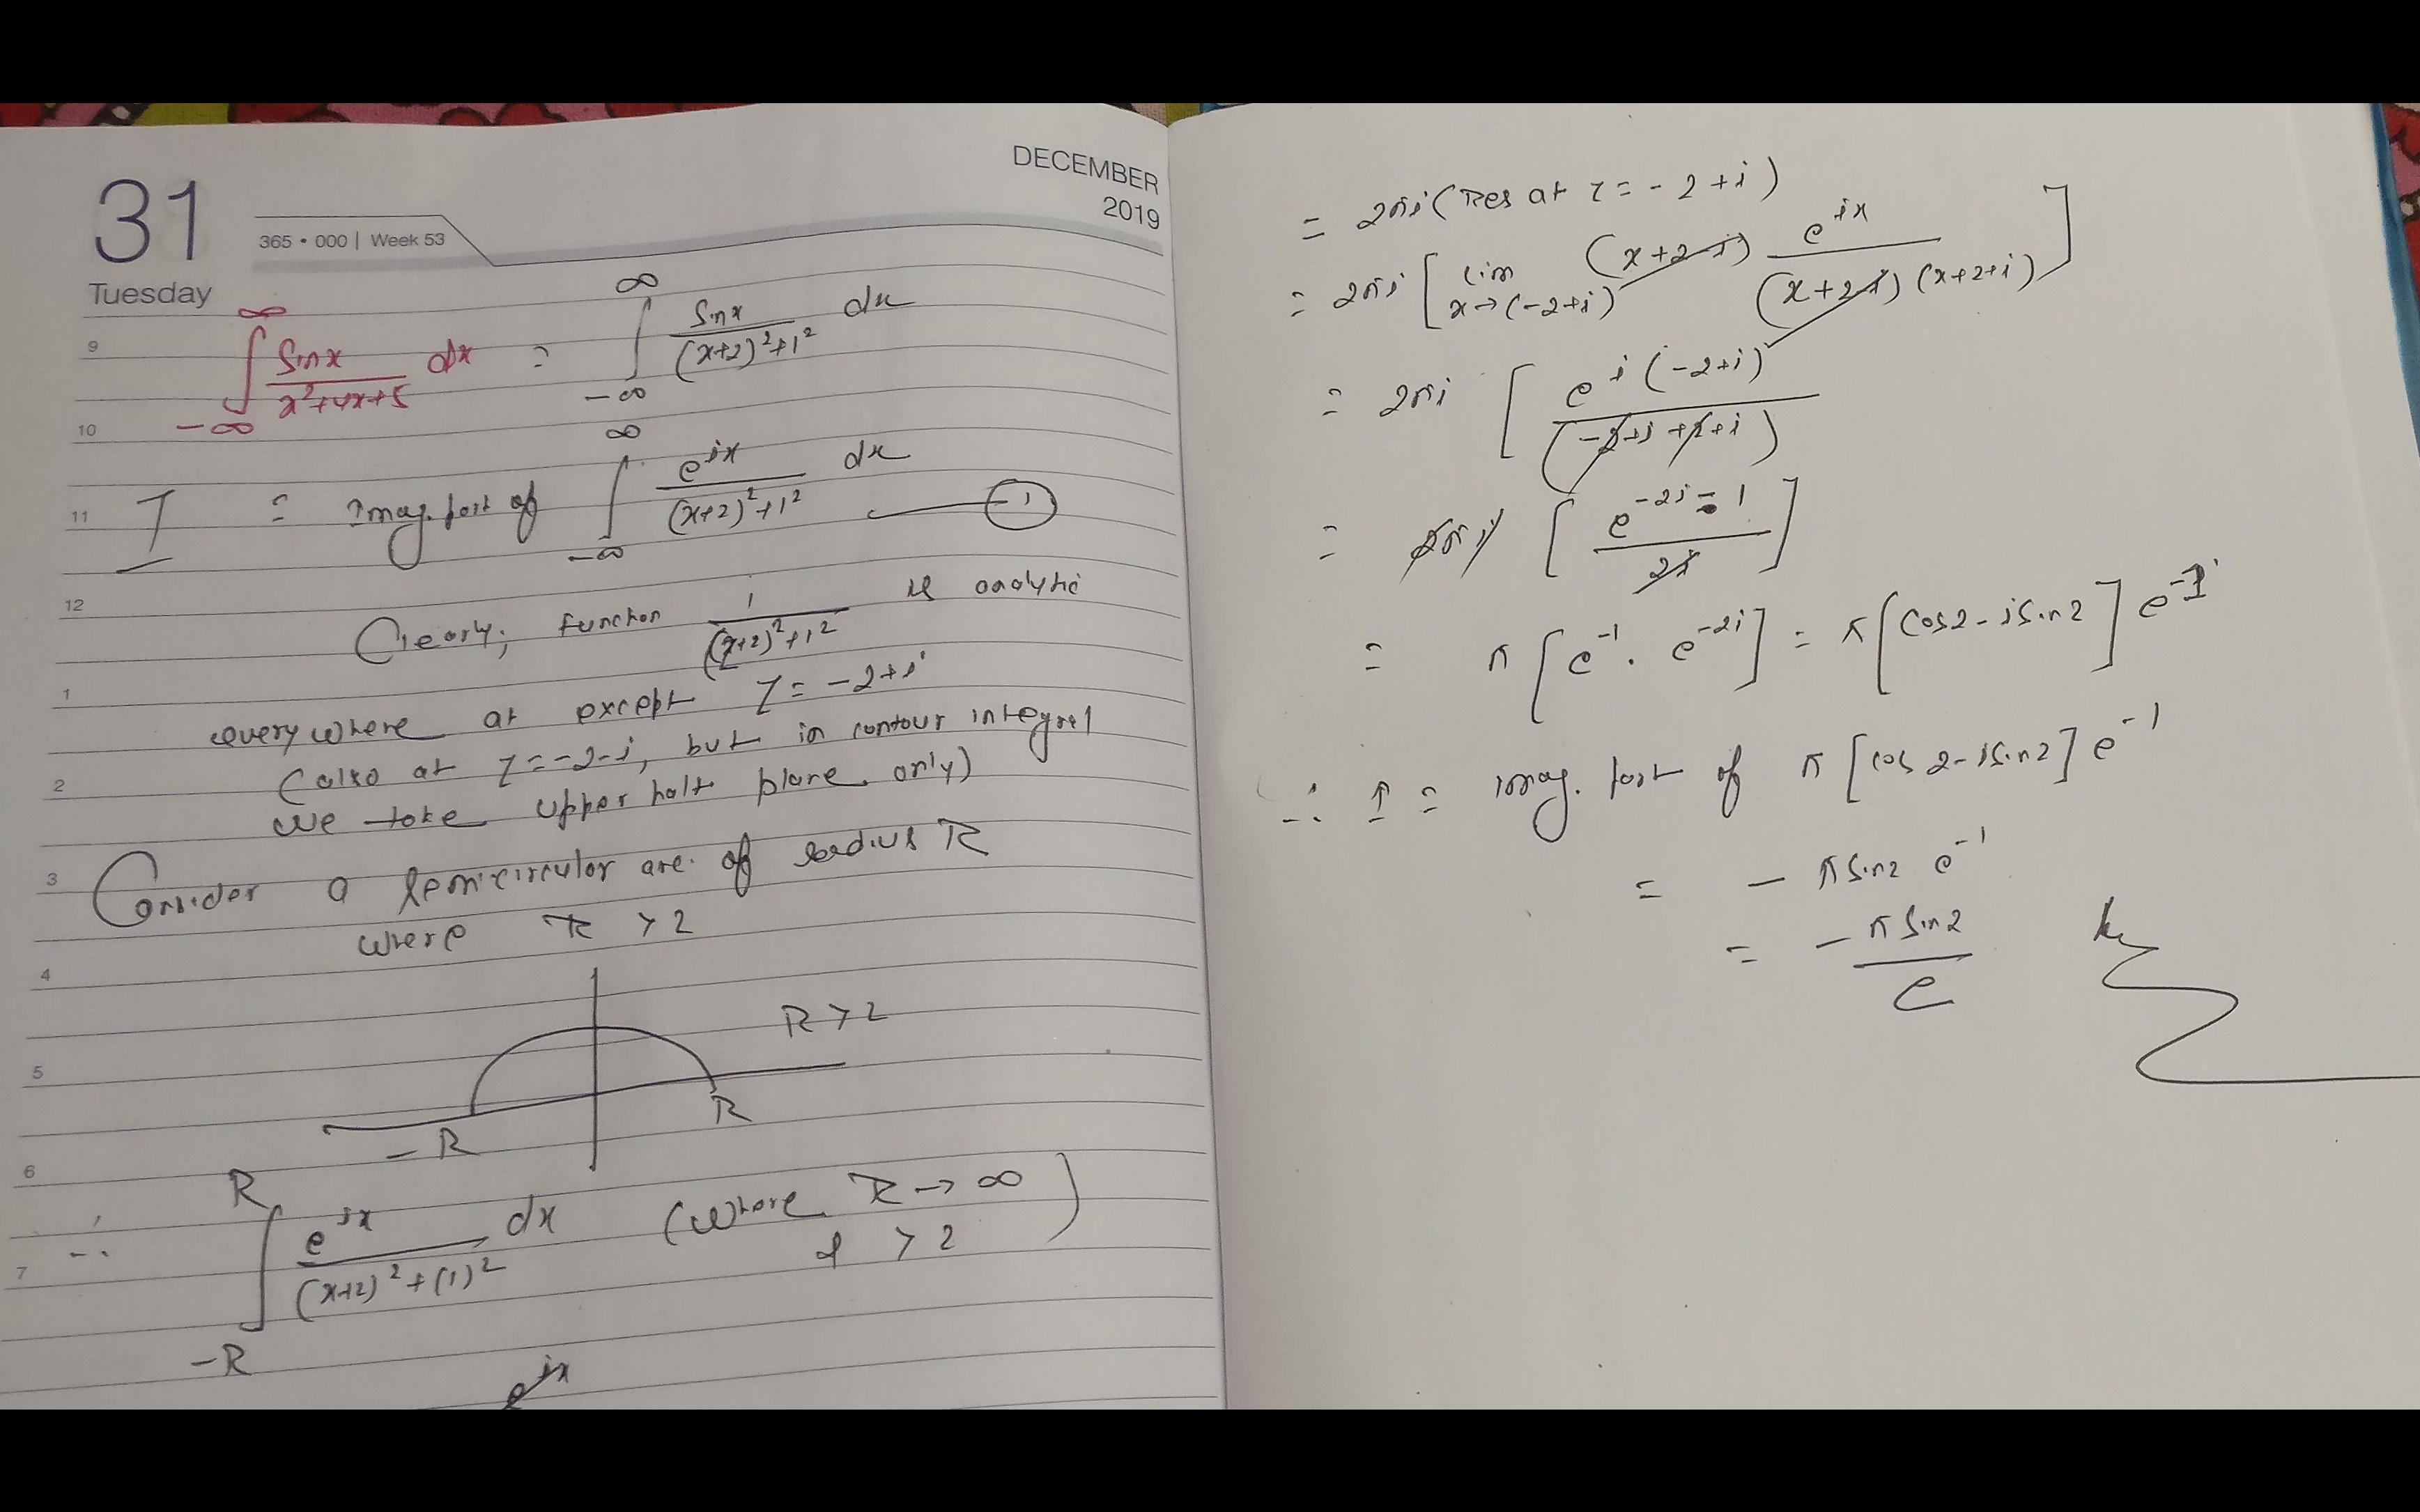 DECEMBER
2019
31
365 • 000 | Week 53
Tuesday
∫_{-∞}^{∞} Sinx/(x²+4x+5) dx = ∫_{-∞}^{∞} Sinx/((x+2)²+1²) dx
I = Imag. part of ∫_{-∞}^{∞} e^{ix}/((x+2)²+1²) dx —— ①
Clearly, function 1/((z+2)²+1²) is analytic
everywhere at except z = -2+i
(also at z = -2-i, but in contour integral
we take upper half plane only)
Consider a semicircular arc of radius R
where R > 2
R > 2
-R R
∴ ∫_{-R}^{R} e^{ix}/((x+2)²+(1)²) dx (where R → ∞
& > 2)
e^{ix}
9
10
11
12
1
2
3
4
5
6
7
= 2πi (Res at z = -2+i)
= 2πi [lim_{x→(-2+i)} (x+2-i) e^{ix}/((x+2-i)(x+2+i))]
= 2πi [e^{i(-2+i)}/(-2+i+2+i)]
= 2πi [e^{-2i-1}/2i]
= π[e^{-1}. e^{-2i}] = π[cos2-isin2] e^{-1}
∴ I = imag. part of π[cos2-isin2] e^{-1}
= - π sin2 e^{-1}
= - π sin2/e